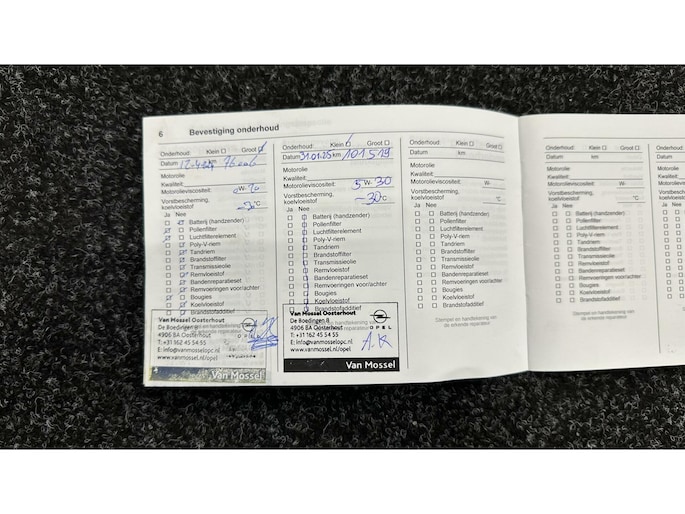 6 Bevestiging onderhoud
Onderhoud: Klein Groot
Datum km
Motorolie
Kwaliteit:
Motorolieviscositeit: W-
Vorstbescherming,
koelvloeistof °C
Ja Nee
Batterij (handzender)
Pollenfilter
Luchtfilterelement
Poly-V-riem
Tandriem
Brandstoffilter
Transmissieolie
Remvloeistof
Bandenreparatieset
Remvoeringen voor/achter
Bougies
Koelvloeistof
Brandstofadditief
Van Mossel Oosterhout
De Boedingen 8
4906 BA Oosterhout
T: +31 162 45 54 55
E: info@vanmosselopc.nl
www.vanmossel.nl/opel
Van Mossel
Onderhoud: Klein Groot
Datum 31.01.25 km 101519
Motorolie
Kwaliteit:
Motorolieviscositeit: 5 W- 30
Vorstbescherming,
koelvloeistof -30 °C
Ja Nee
Batterij (handzender)
Pollenfilter
Luchtfilterelement
Poly-V-riem
Tandriem
Brandstoffilter
Transmissieolie
Remvloeistof
Bandenreparatieset
Remvoeringen voor/achter
Bougies
Koelvloeistof
Brandstofadditief
Van Mossel Oosterhout
De Boedingen 8
4906 BA Oosterhout
T: +31 162 45 54 55
E: info@vanmosselopc.nl
www.vanmossel.nl/opel
OPEL
A.K
Van Mossel
Onderhoud: Klein Groot
Datum km
Motorolie
Kwaliteit:
Motorolieviscositeit: W-
Vorstbescherming,
koelvloeistof °C
Ja Nee
Batterij (handzender)
Pollenfilter
Luchtfilterelement
Poly-V-riem
Tandriem
Brandstoffilter
Transmissieolie
Remvloeistof
Bandenreparatieset
Remvoeringen voor/achter
Bougies
Koelvloeistof
Brandstofadditief
Stempel en handtekening van
de erkende reparateur
Onderhoud: Klein Groot
Datum km
Motorolie
Kwaliteit:
Motorolieviscositeit: W-
Vorstbescherming,
koelvloeistof °C
Ja Nee
Batterij (handzender)
Pollenfilter
Luchtfilterelement
Poly-V-riem
Tandriem
Brandstoffilter
Transmissieolie
Remvloeistof
Bandenreparatieset
Remvoeringen voor/achter
Bougies
Koelvloeistof
Brandstofadditief
Stempel en handtekening van
de erkende reparateur